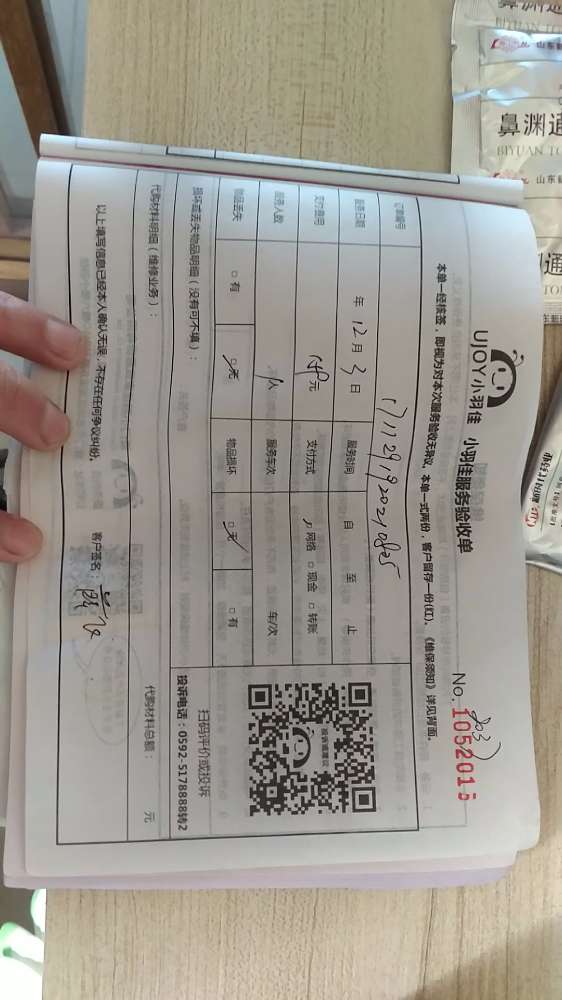 UJOY小羽佳 小羽佳服务验收单
No. 1052015
本单一经核签，即视为对本次服务验收无异议。本单一式两份，客户留存一份(红)。《维保须知》详见背面。
订单编号
服务日期 年 12 月 3 日 服务时间 自 至 止
支付费用 元 支付方式 网络 □ 现金 □ 转账
服务人数 1 人 服务车次 车/次
物品丢失 □ 有 □ 无 物品损坏 □ 无 □ 有
损坏或丢失物品明细（没有可不填）：
扫码评价或投诉
投诉电话：0592-5178888转2
代购材料明细（维修业务）：
代购材料总额： 元
以上填写信息已经本人确认无误，不存在任何争议纠纷。 客户签名：
投诉或建议
鼻渊通
BIYUAN TO
山东
鼻渊通
BIYUAN TO
山东